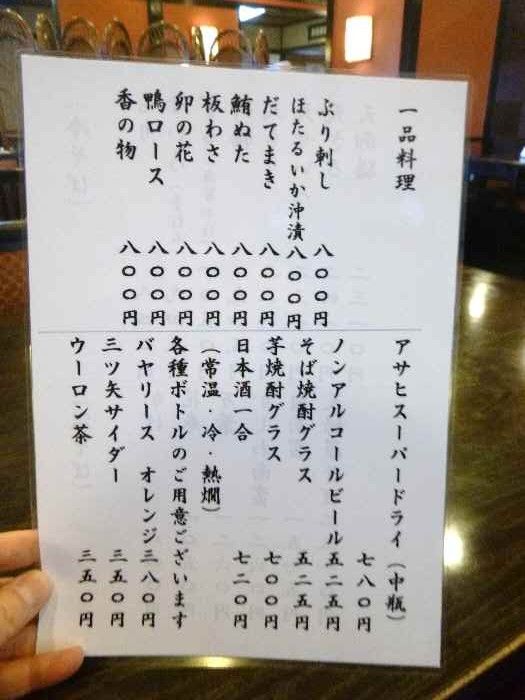 一品料理
ぶり刺し 八〇〇円
ほたるいか沖漬 八〇〇円
だてまき 八〇〇円
鮪ぬた 八〇〇円
板わさ 八〇〇円
卯の花 八〇〇円
鴨ロース 八〇〇円
香の物 八〇〇円
アサヒスーパードライ(中瓶)
七八〇円
ノンアルコールビール 五二五円
そば焼酎グラス 五二五円
芋焼酎グラス 七〇〇円
日本酒一合 七二〇円
(常温・冷・熱燗)
各種ボトルのご用意ございます
バヤリース オレンジ 三八〇円
三ツ矢サイダー 三五〇円
ウーロン茶 三五〇円